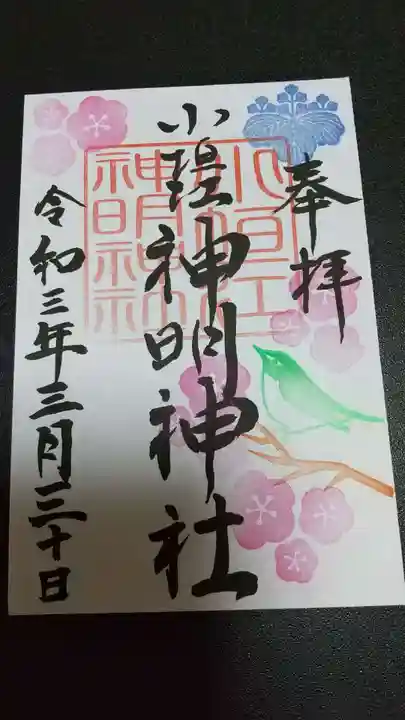 奉拝
小垣江神明神社
小垣江神明神社
令和三年三月三十日